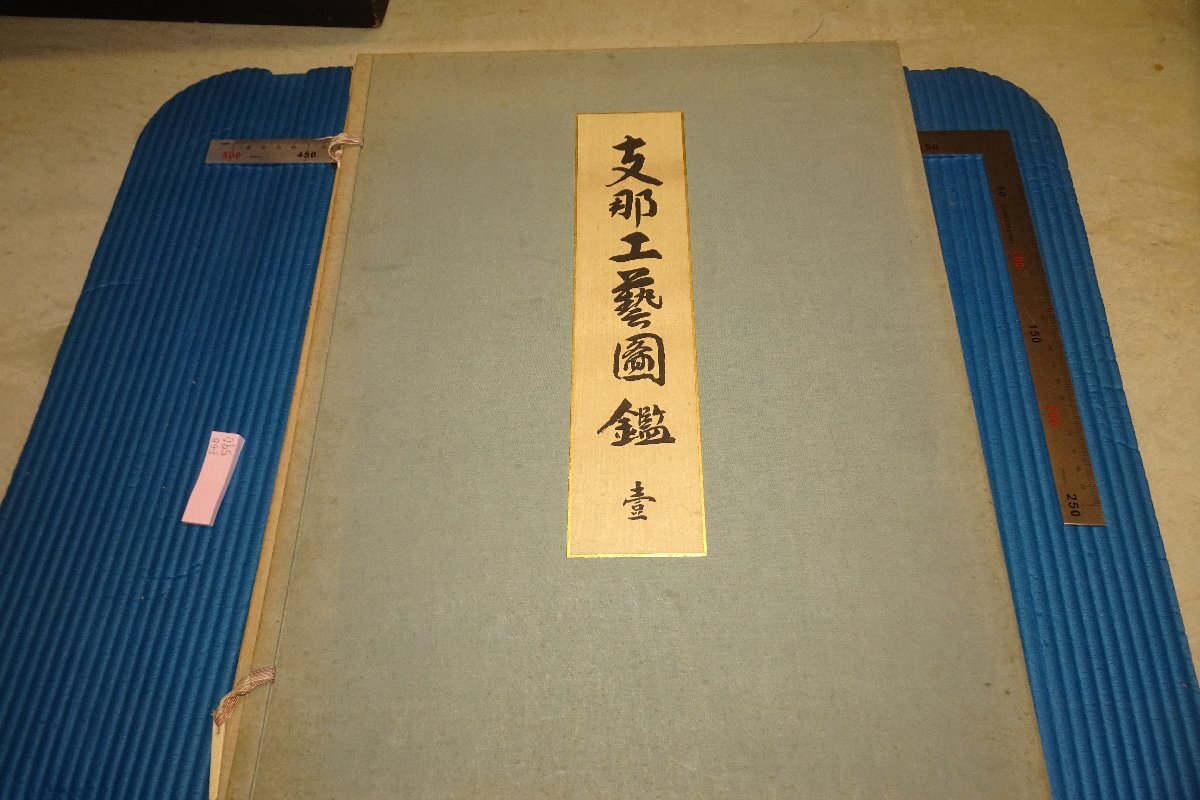 支那工藝圖鑑 壹
500
450
50
50
150
250